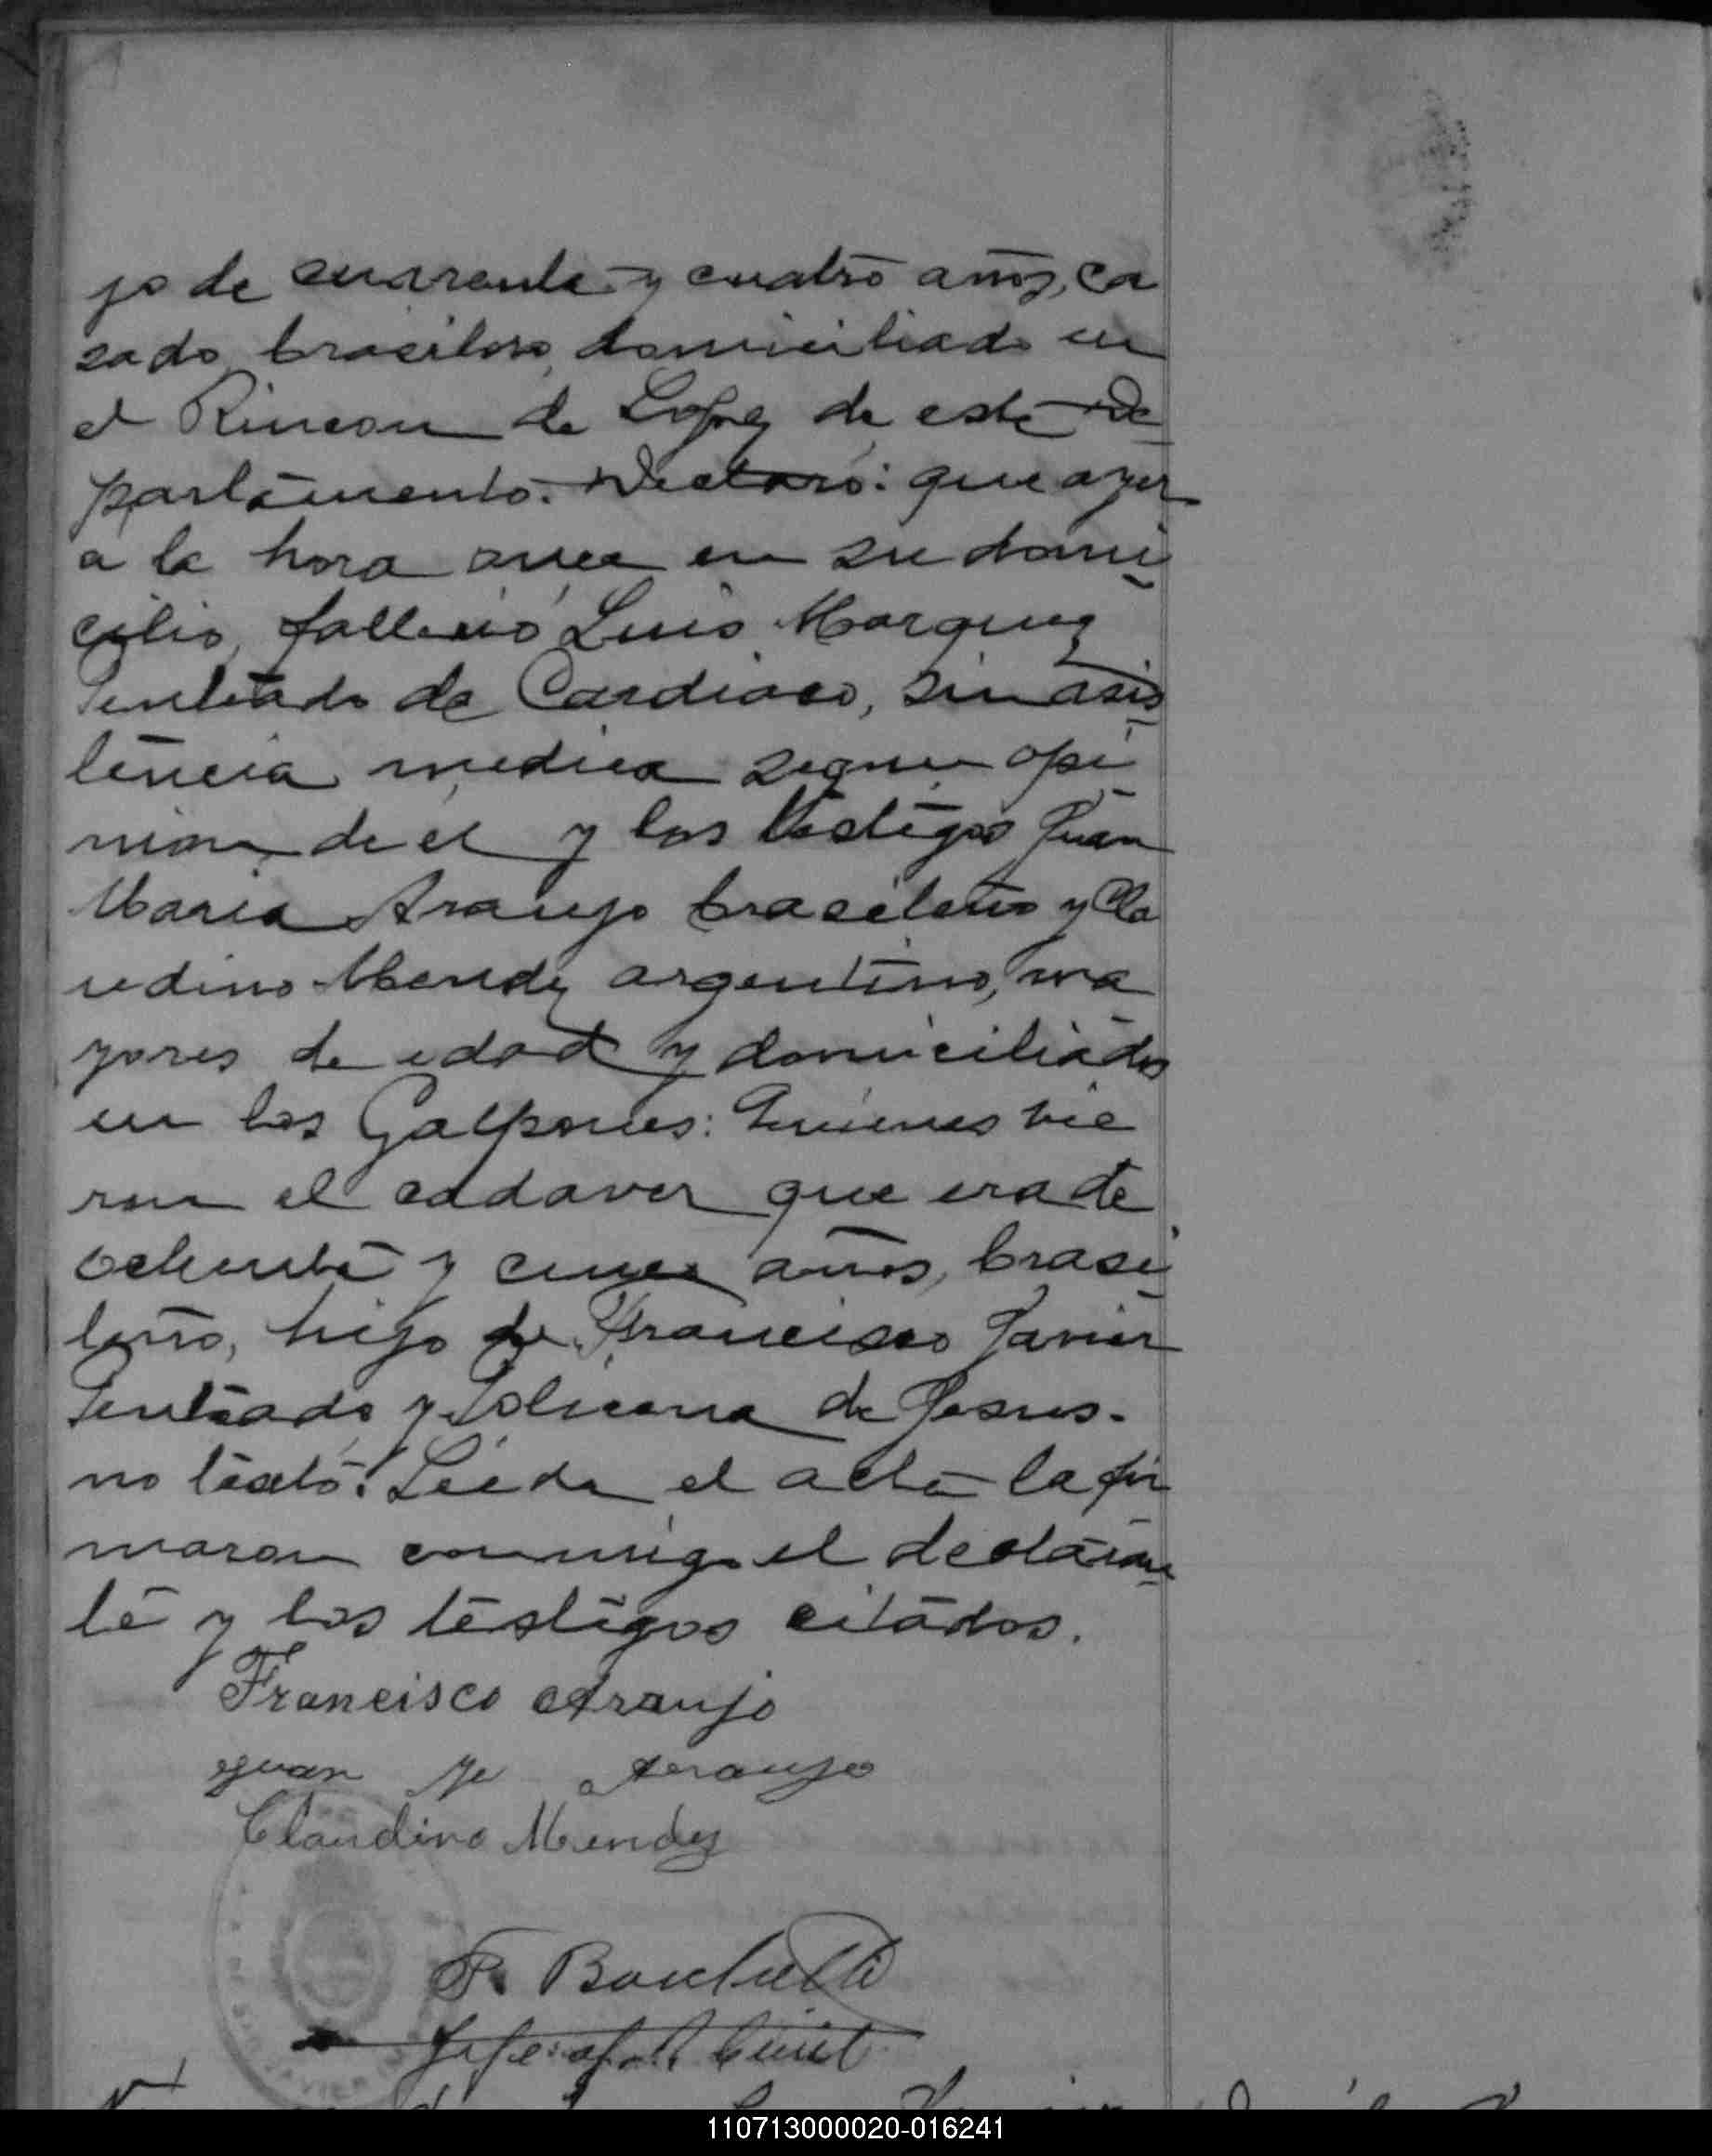 jo de cuarenta y cuatro años, ca
sado, brasilero, domiciliado en
el Rincon de Lopez de este De
partamento. Declaró: que ayer
a la hora once en su domi
cilio, falleció Luis Marquez
Penteado de Cardiaco, sin asis
tencia medica segun opi
nion de el y los testigos Juan
Maria Araujo brasileño y Cla
udino Mendez argentino, ma
yores de edad y domiciliados
en los Galpones: Quienes vie
ron el cadaver que era de
ochenta y cinco años, brasi
leño, hijo de Francisco Javier
Penteado y Policena de Jesus.
no testó. Leida el acta la fir
maron conmigo el declaran
te y los testigos citados.
Francisco Araujo
Juan M Araujo
Claudino Mendez
Jefe del R. Civil
110713000020-016241